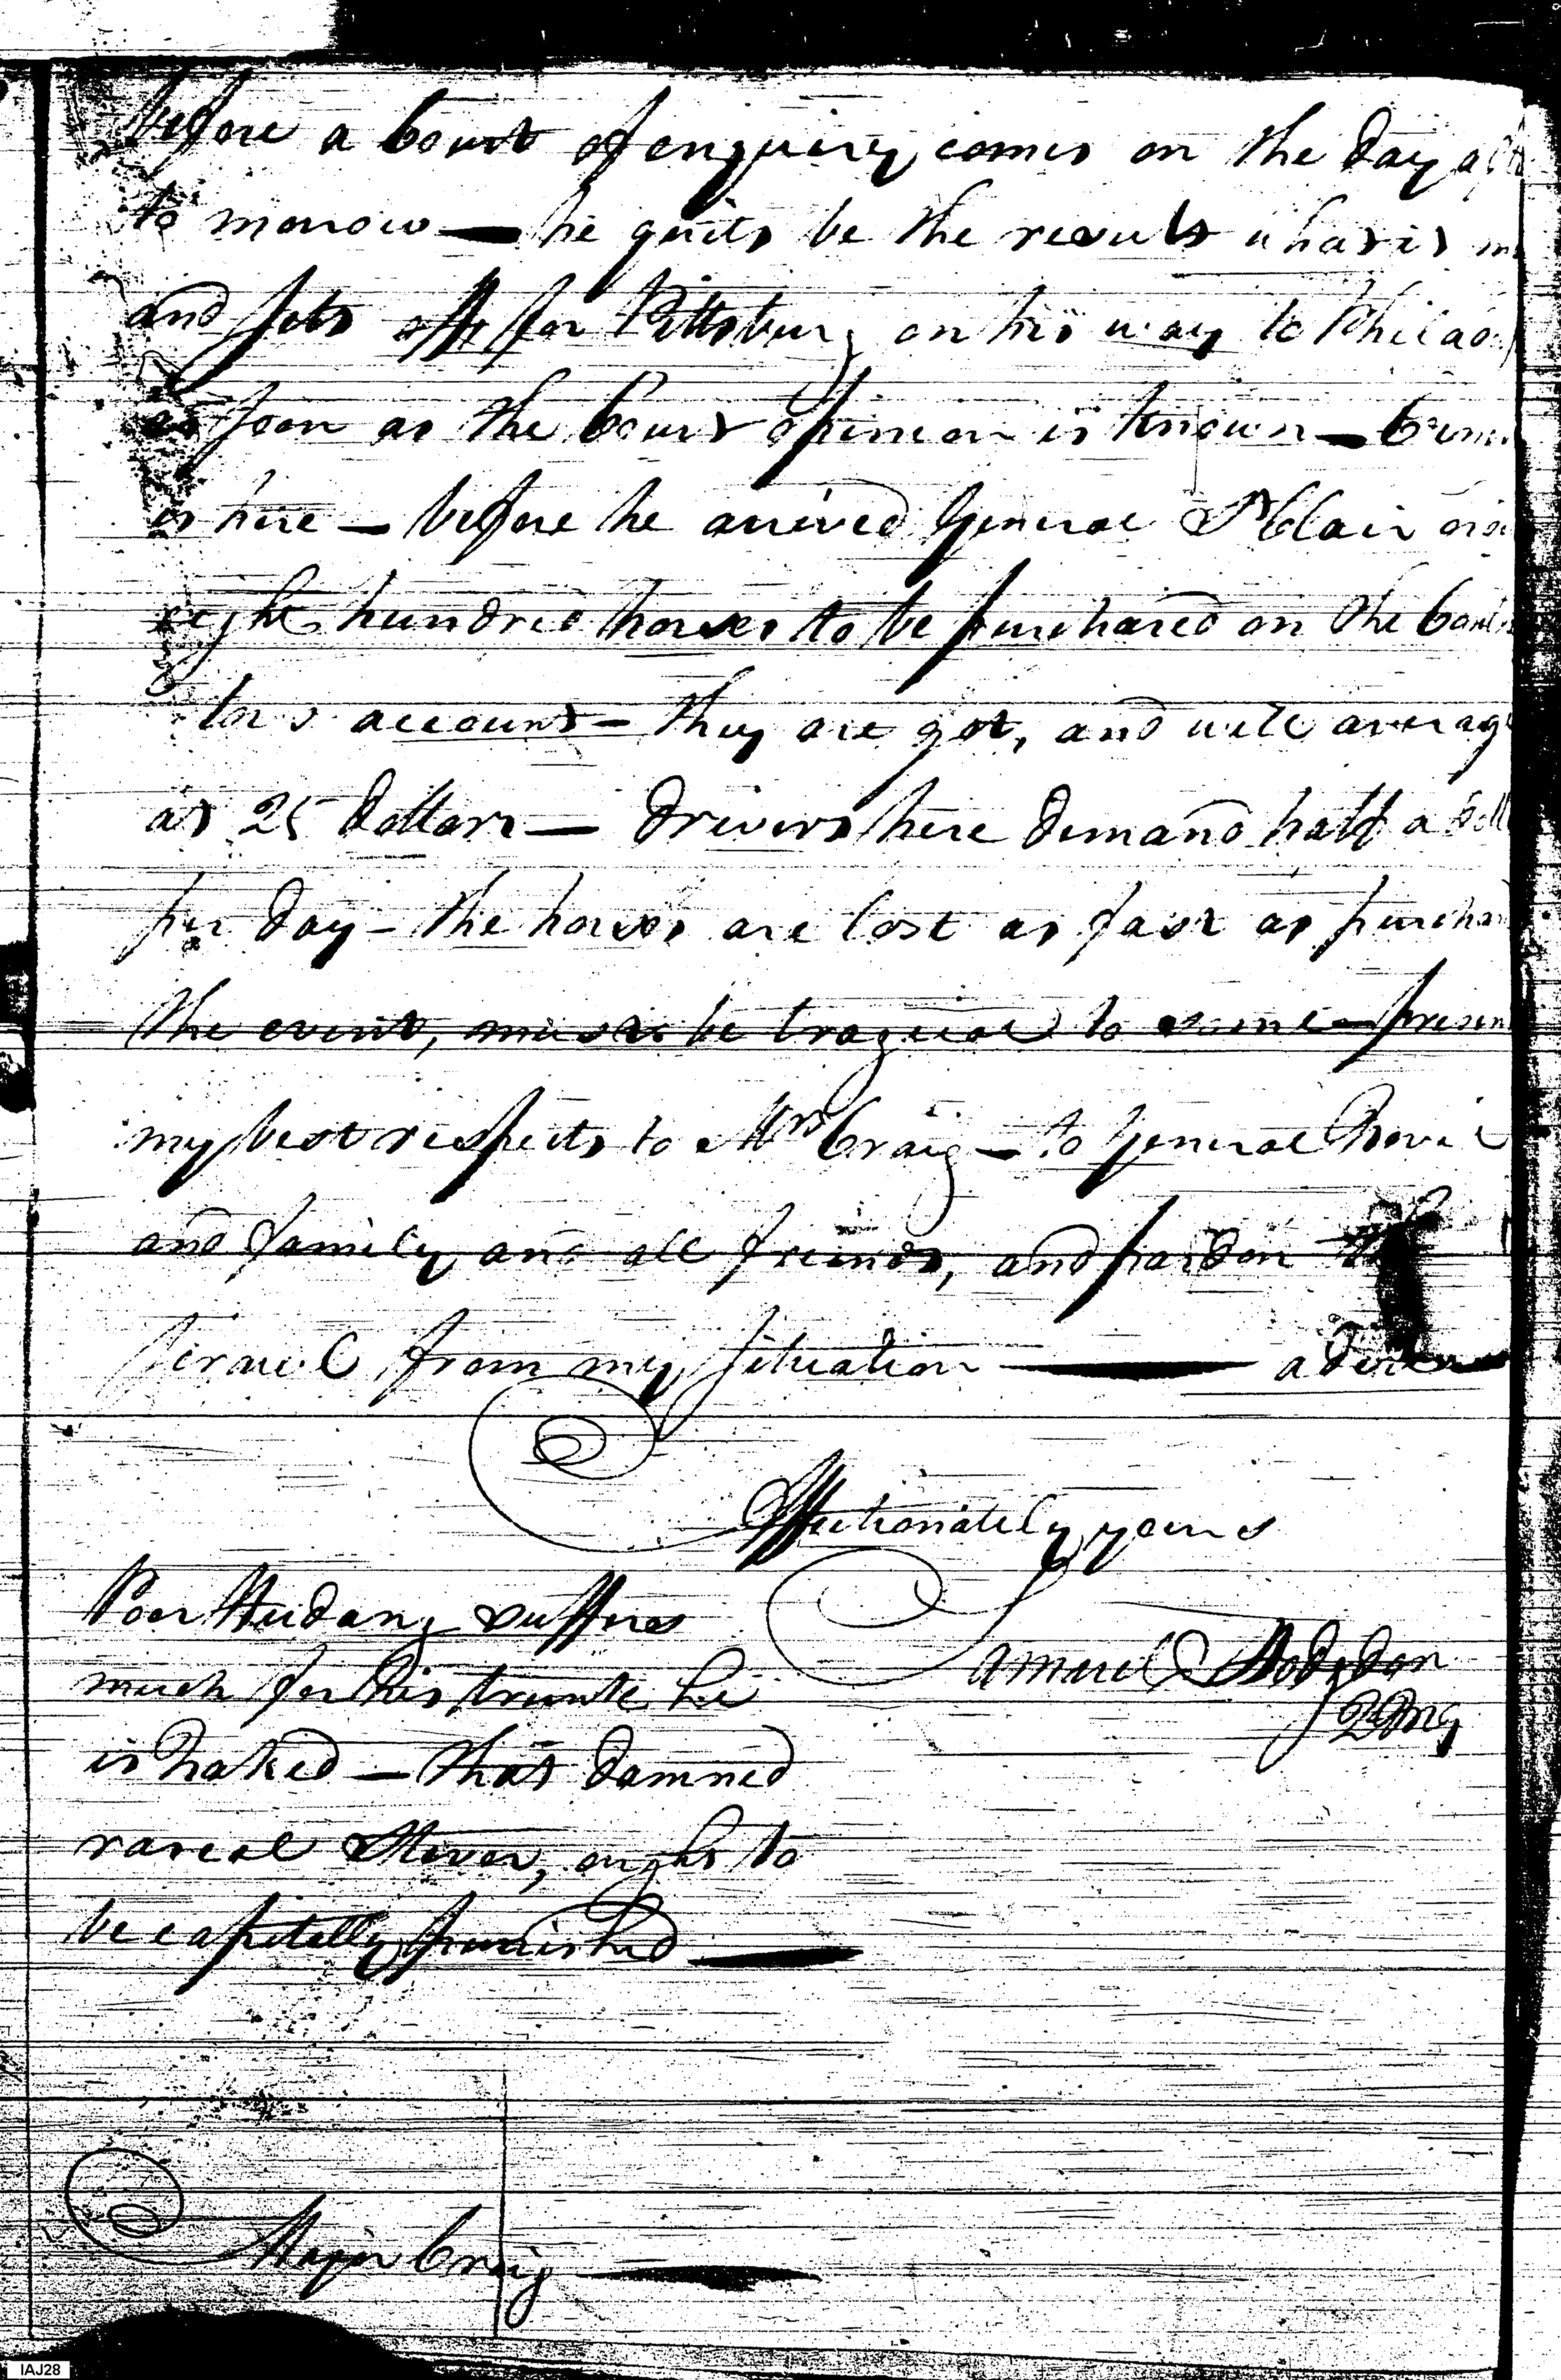 before a Court of enquiry comes on the day aft
to morrow — he quits be the results whas is
and sets off for Pittsburg on his way to Philad
as soon as the Courts opinion is known —
is here — before he arrived General St Clair
eight hundred horses to be purchased on the
tors account — they are got, and will averag
at 25 Dollars — Drivers here demand half a Doll
per day — the horses are lost as fast as purcha
the event, must be tragical to some — presen
my best respects to Mrs Craig — to General
and family and all friends, and pardon
from my situation — adieu
Affectionately yours
Samuel Hodgdon
QMG
Poor suffers
much for his trunk he
is naked — that damned
rascal ought to
be capitally punished
Major Craig
IAJ28